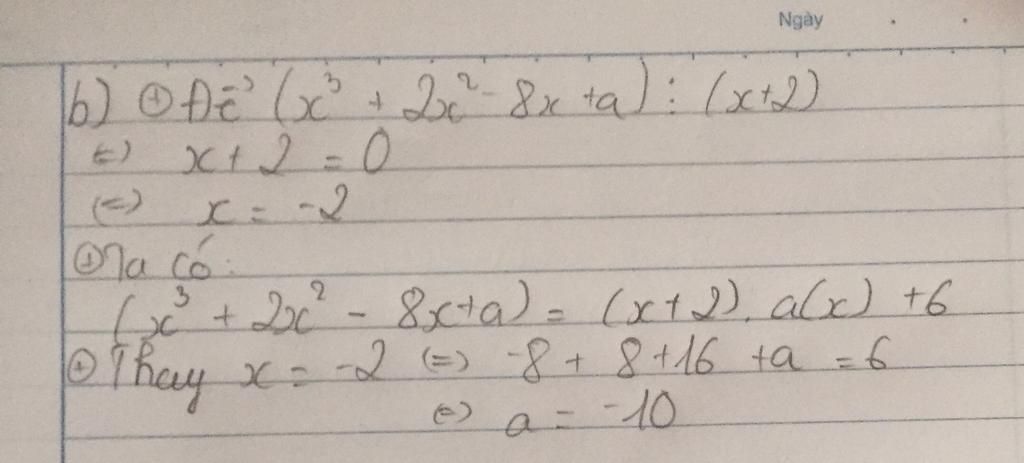 Ngày
b) ⊕ Để (x³ + 2x² - 8x + a) ⋮ (x+2)
⇔ x + 2 = 0
⇔ x = -2
⊕ Ta có:
(x³ + 2x² - 8x + a) = (x + 2). a(x) + 6
⊕ Thay x = -2 ⇔ -8 + 8 + 16 + a = 6
⇔ a = -10